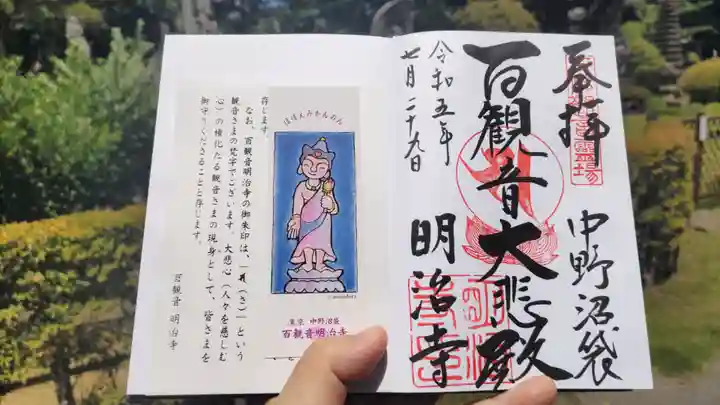 奉拝
中野沼袋
百観音大悲殿
明治寺
令和五年
七月二十九日
ほほえみかんのん
東京 中野沼袋
百観音明治寺
存じます。
なお、百観音明治寺の御朱印は、「(さ)」という
観音さまの梵字でございます。大悲心(人々を慈しむ
心)の権化たる観音さまの現身として、皆さまを
御守りくださることと存じます。
百観音 明治寺